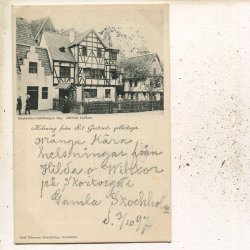 Stockholms Utställningen 1897. Officiela brefkort.
Helsning från S:t Gertruds gillestuga.
Många Kära
helsningar från
Hilda o
på Stortorget
Gamla Stockholm
d. 3/10 97
Axel Eliassons Konstförlag, Stockholm.